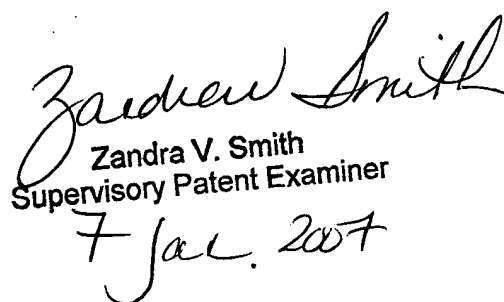 Zandra Smith
Zandra V. Smith
Supervisory Patent Examiner
7 Jan. 2007